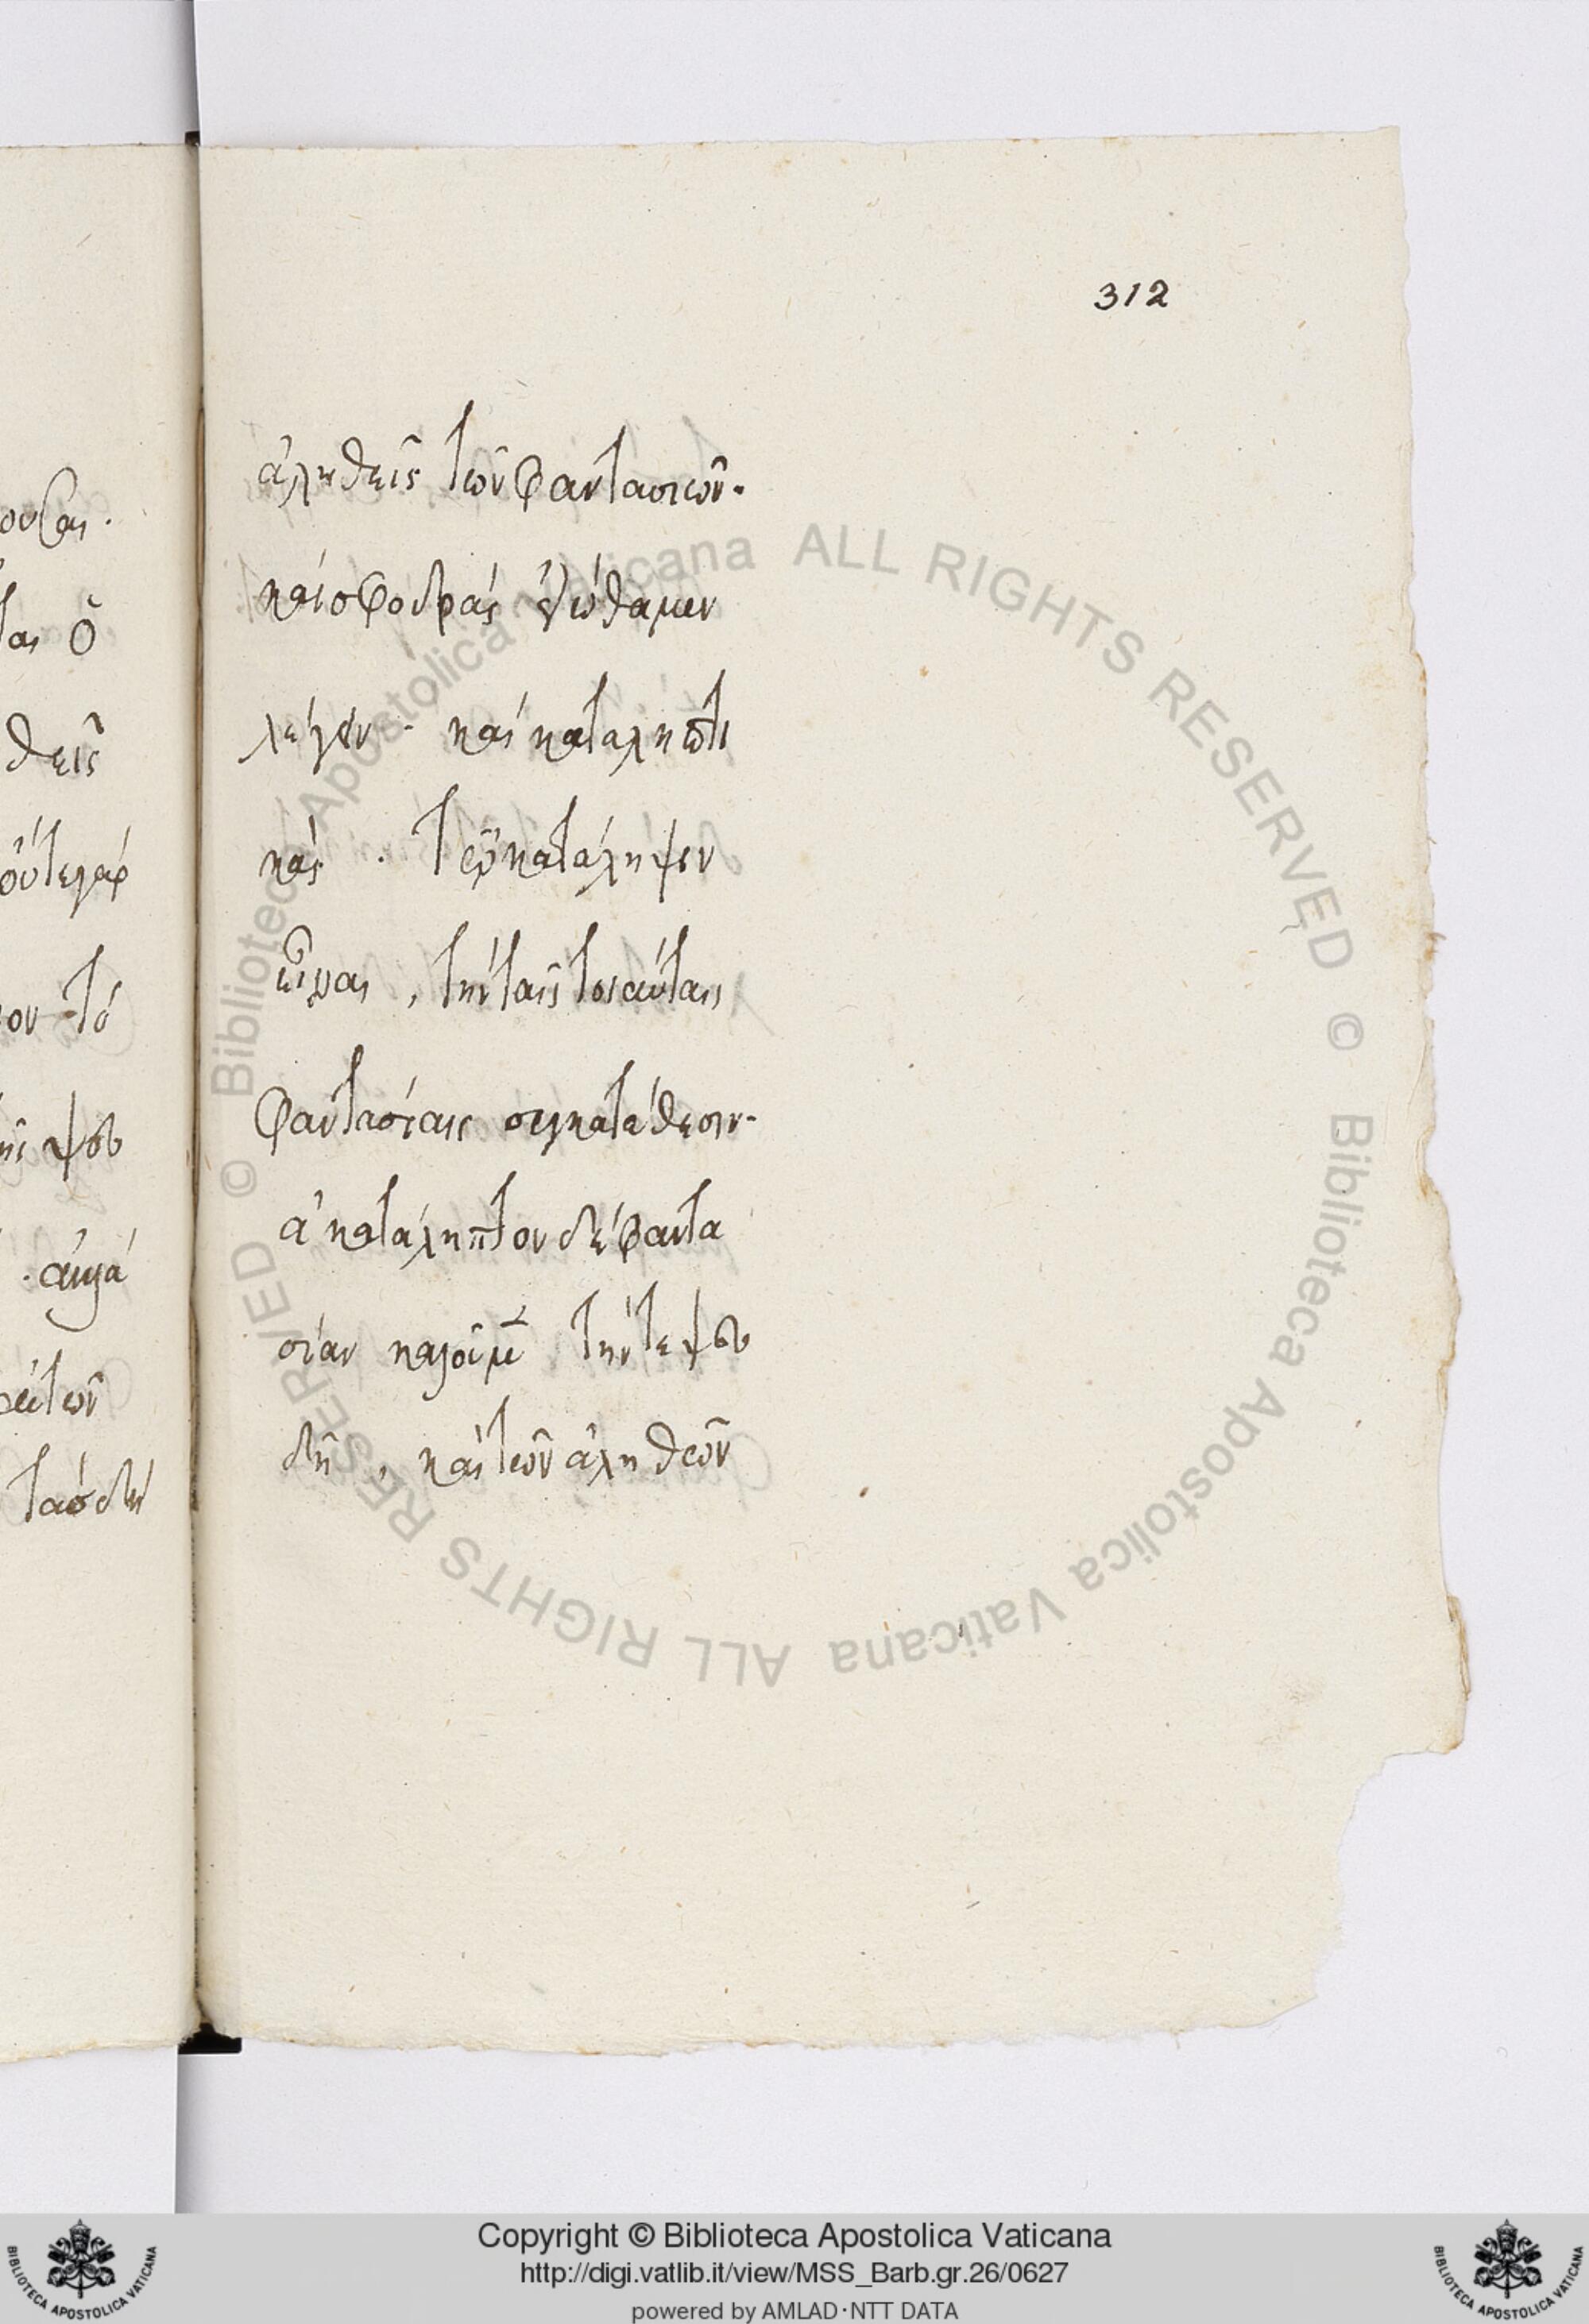 312
ουσαι.
ται ὃ
θεῖς
οὔτε γὰρ
ον τό
ψευ
τῶν
ἀληθεῖς τῶν φαντασιῶν.
καὶ σφοδρὰς εἰώθαμεν
λέγειν. καὶ καταληπτι
κάς. τῷ κατάληψιν
εἶναι, τὴν ταῖς τοιαύταις
φαντασίαις συγκατάθεσιν.
ἀκατάληπτον δὲ φαντα
σίαν καλοῦμεν τήν τε ψευ
δῆ, καὶ τῶν ἀληθῶν
© Biblioteca Apostolica Vaticana ALL RIGHTS RESERVED © Biblioteca Apostolica Vaticana ALL RIGHTS RESERVED
Copyright © Biblioteca Apostolica Vaticana
http://digi.vatlib.it/view/MSS_Barb.gr.26/0627
powered by AMLAD·NTT DATA
BIBLIOTECA APOSTOLICA VATICANA
BIBLIOTECA APOSTOLICA VATICANA